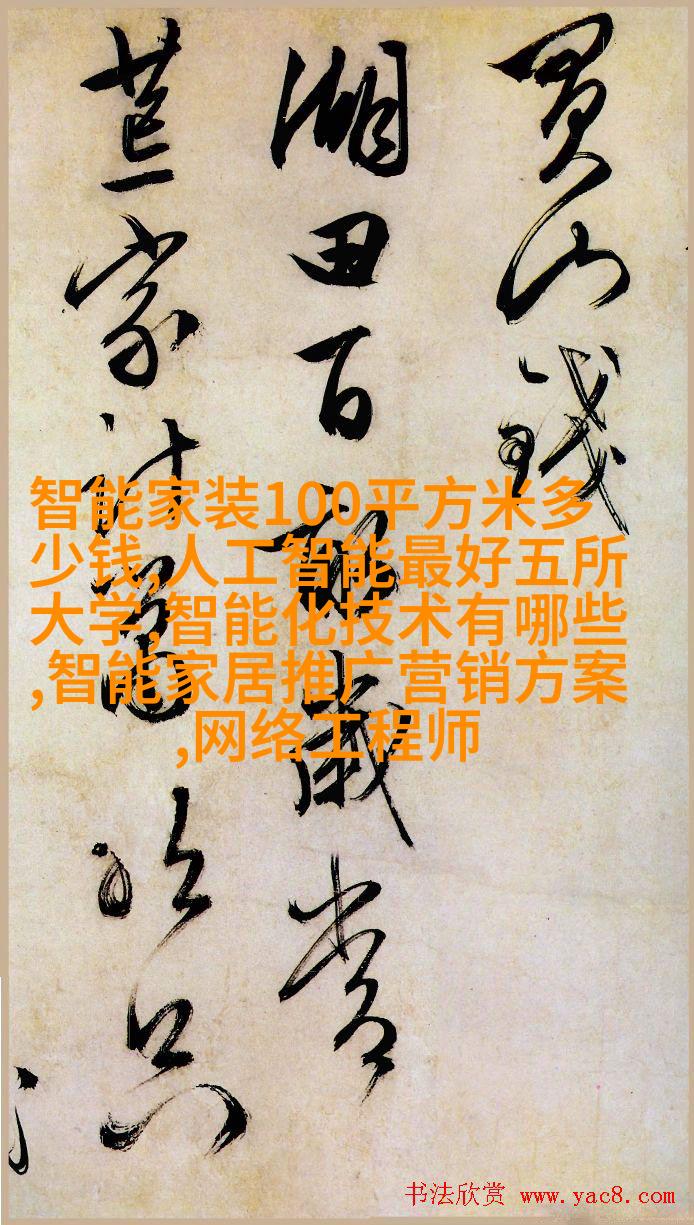 買山錢
湖田百畝歲常
荒家計只
智能家装100平方米多
少钱,人工智能最好五所
大学,智能化技术有哪些
,智能家居推广营销方案
,网络工程师
书法欣赏 www.yac8.com